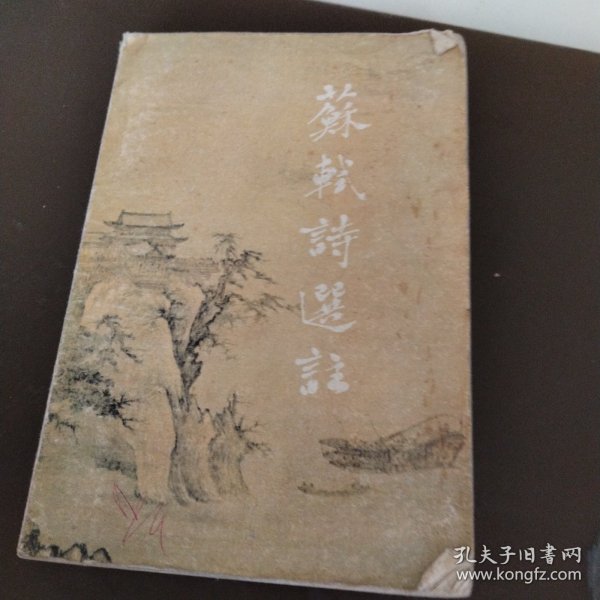 蘇軾詩選註
孔夫子旧书网
www.kongfz.com